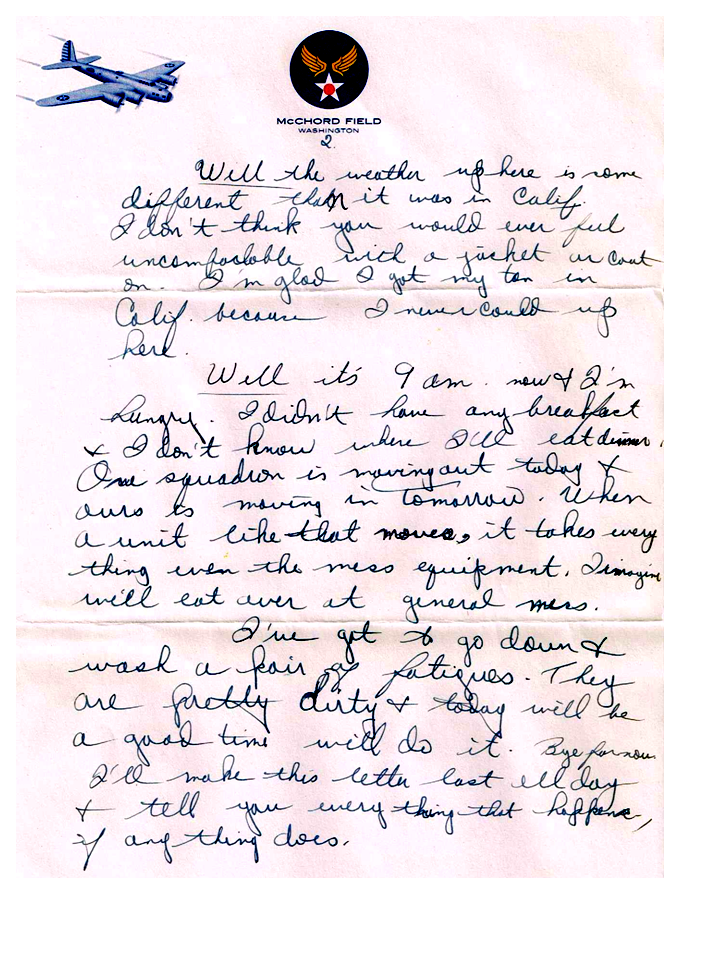 McCHORD FIELD
WASHINGTON
2.
Well the weather up here is some
different than it was in Calif.
I don't think you would ever feel
uncomfoclable with a jacket or coat
on. I'm glad I got my tan in
Calif. because I never could up
here.
Well it's 9 am. now & I'm
hungry. I didn't have any breakfast
& I don't know where I'll eat dinner.
One squadron is moving out today &
ours is moving in tomorrow. When
a unit like that moves, it takes every
thing even the mess equipment. I imagine
will eat over at general mess.
I've got to go down &
wash a pair of fatigues. They
are pretty dirty & today will be
a good time will do it. Bye for now
I'll make this letter last all day
& tell you every thing that happens,
if any thing does.